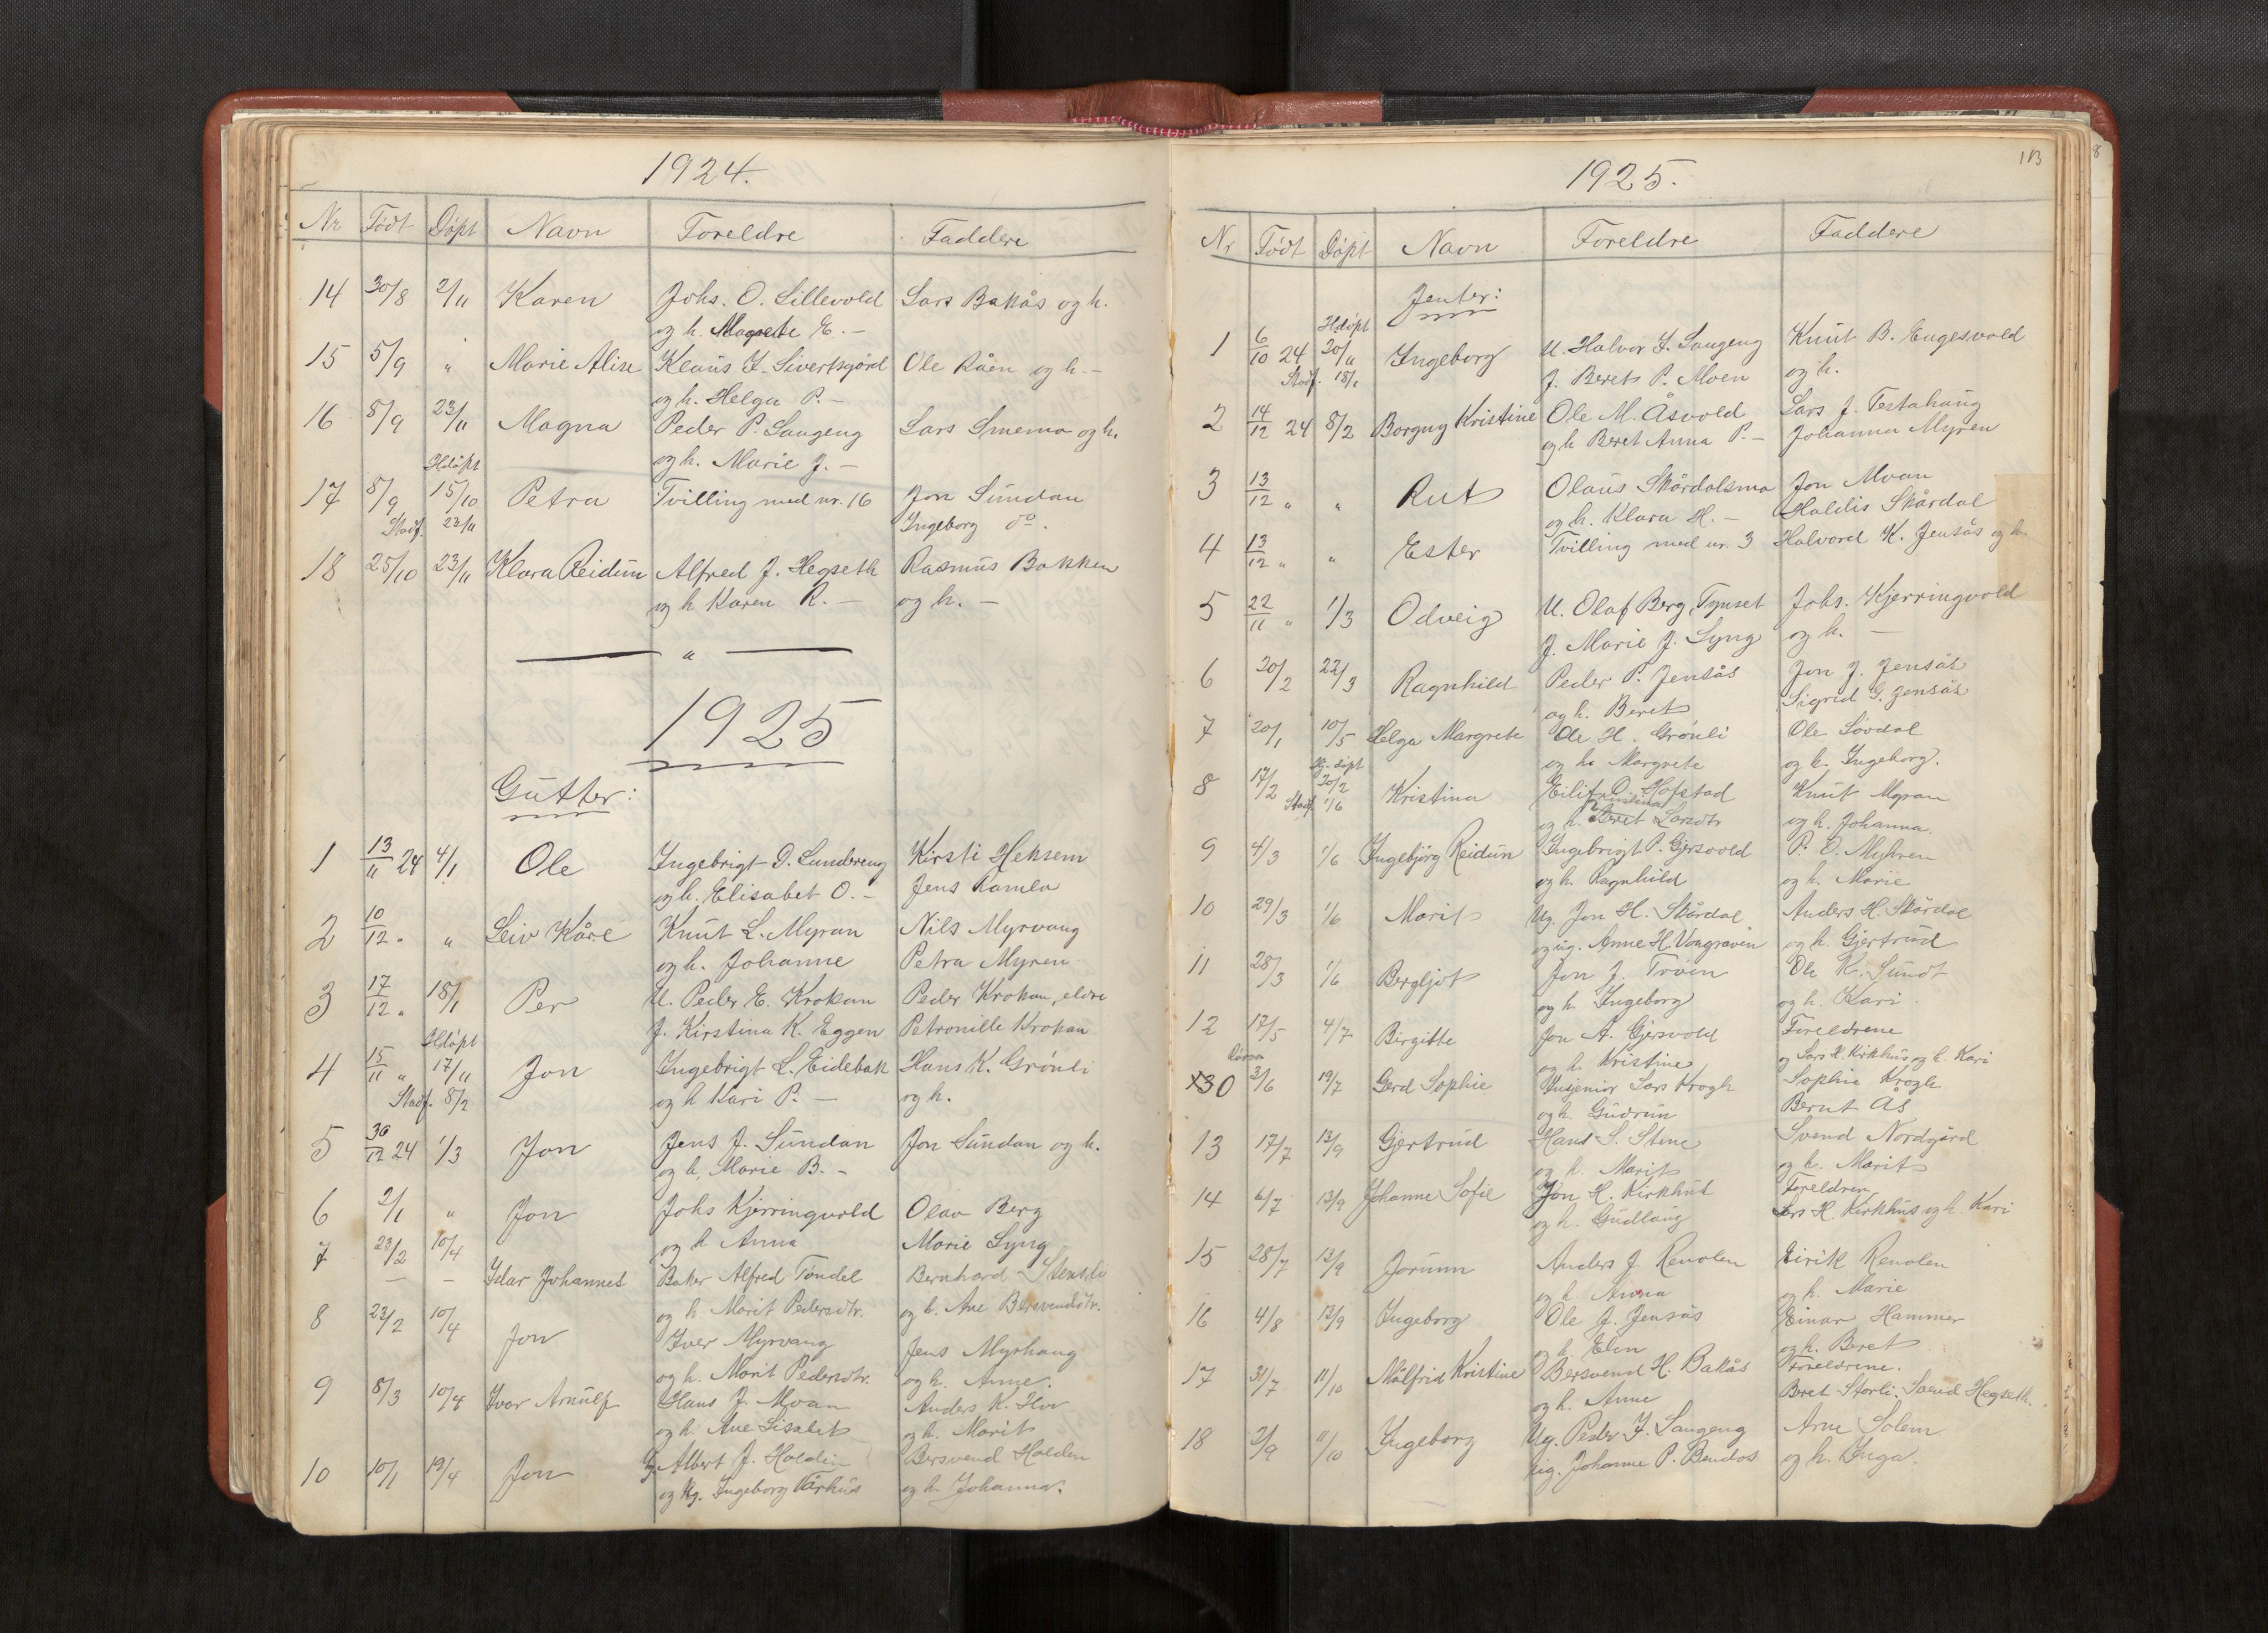 1924.
Nr Født Døpt Navn Foreldre Faddere
14 30/8 2/11 Karen Johs. O. Lillevold Lars Bakås og h.
og h. Magrete E. –
15 5/9 " Marie Alise Klaus J. Sivertsgård Ole Råen og h. –
og h. Helga P. –
16 8/9 23/11 Magna Peder P. Langeng Lars Smemo og h.
og h. Marie J. –
Hdøpt
17 8/9 15/10 Petra Tvilling med nr. 16 Jon Sundan
Stadf. 23/11 Ingeborg do.
18 25/10 23/11 Klara Reidun Alfred J. Hegseth Rasmus Bakken
og h Karen R. – og h. –
— " —
1925
Gutter:
1 13/11 24 4/1 Ole Ingebrigt O. Lundereng Kirsti Heksem
og h. Elisabet O. – Jens Ramlo
2 10/12 " " Leiv Kåre Knut L. Myran Nils Myrvang
og h. Johanne Petra Myren
3 17/12 " 18/1 Per U. Peder E. Krokan Peder Krokan, eldre
J. Kirstina K. Eggen Petronille Krokan
Hdøpt
4 15/11 " 17/11 Jon Ingebrigt L. Eidebak Hans K. Grønli
Stadf. 8/2 og h Kari P. – og h.
5 30/12 24 1/3 Jon Jens J. Sundan Jon Sundan og h.
og h, Marie B. –
6 2/1 " Jon Johs Kjerringvold Olav Berg
og h Anna Marie Lyng
7 23/2 10/4 Idar Johannes Baker Alfred Tøndel Bernhard Stensli
og h. Marit Pedersdtr. og h. Ane Bersvendsdtr.
8 23/2 10/4 Jon Iver Myrvang Jens Myrhaug
og h. Marit Pedersdtr. og h. Anne.
9 8/3 10/4 Ivar Arnulf Hans J. Moan Anders K.
og h. Ane Lisabet og h. Marit
10 10/1 19/4 Jon Ug. Albert J. Holden Bersvend Holden
og ug. Ingeborg Vårhus og h Johanna.
113
1925.
Nr Født Døpt Navn Foreldre Faddere
Jenter:
Hdøpt
1 6/10 24 20/11 Ingeborg U. Halvor J. Langeng Knut B. Engesvold
Stadf. 18/1 J. Beret P. Moen og h.
2 14/12 24 8/2 Borgny Kristine Ole M. Åsvold Lars J. Festahaug
og h Beret Anna P. – Johanna Myren
3 13/12 " " Rut Olaus Skårdalsmo Jon Moan
og h. Klara H. – Haldis Skårdal
4 13/12 " " Ester Tvilling med nr. 3 Halvard K. Jensås og h.
5 22/11 " 1/3 Odveig U. Olaf Berg, Tynset Johs. Kjerringvold
J. Marie J. Lyng og h. –
6 20/2 22/3 Ragnhild Peder P. Jensås Jon J. Jensås
og h. Beret Sigrid G. Jensås
7 20/1 10/5 Helga Margrete Ole H. Grønli Ole Løvdal
og h. Margrete og h. Ingeborg.
Hj. døpt
8 17/2 20/2 Kristina Eilif O. Hofstad Knut Myran
Stadf. 1/6 og h. Beret Kristina Larsdtr og h. Johanna.
9 4/3 1/6 Ingebjørg Reidun Ingebrigt P. Gjersvold P. O. Myhren
og h. Ragnhild og h. Marie
10 29/3 1/6 Marit Ug. Jon H. Skårdal Anders H. Skårdal
og ug. Anne H. Vongraven og h. Gjertrud
11 28/3 1/6 Bergljot Jon J. Trøen Ole K. Sundt
og h. Ingeborg og h. Kari.
12 17/5 4/7 Birgitte Jon A. Gjersvold Foreldrene
og h. Kristine og Lars H. Kirkhus og h. Kari
Røros
X30 3/6 19/7 Gerd Sophie Insjeniør Lars Krogh Sophie Krogh
og h. Gudrun Bernt Ås
13 17/7 13/9 Gjertrud Hans S. Stene Svend Nordgård
og h. Marit og h. Marit
14 6/7 13/9 Johanne Sofie Jon H. Kirkhus Foreldren
og h. Gudlaug Lars H. Kirkhus og h. Kari
15 28/7 13/9 Jorunn Anders J. Renolen Eirik Renolen
og h. Anna og h. Marie
16 4/8 13/9 Ingeborg Ole J. Jensås Einar Hammer
og h. Elen og h. Beret
17 31/7 11/10 Målfrid Kristine Bersvend H. Bakås Foreldrene.
og h. Anne Beret Storli. Svend Hegseth.
18 2/9 11/10 Ingeborg Ug. Peder J. Langeng Arne Solem
ug. Johanne P. Bendos og h. Inga.